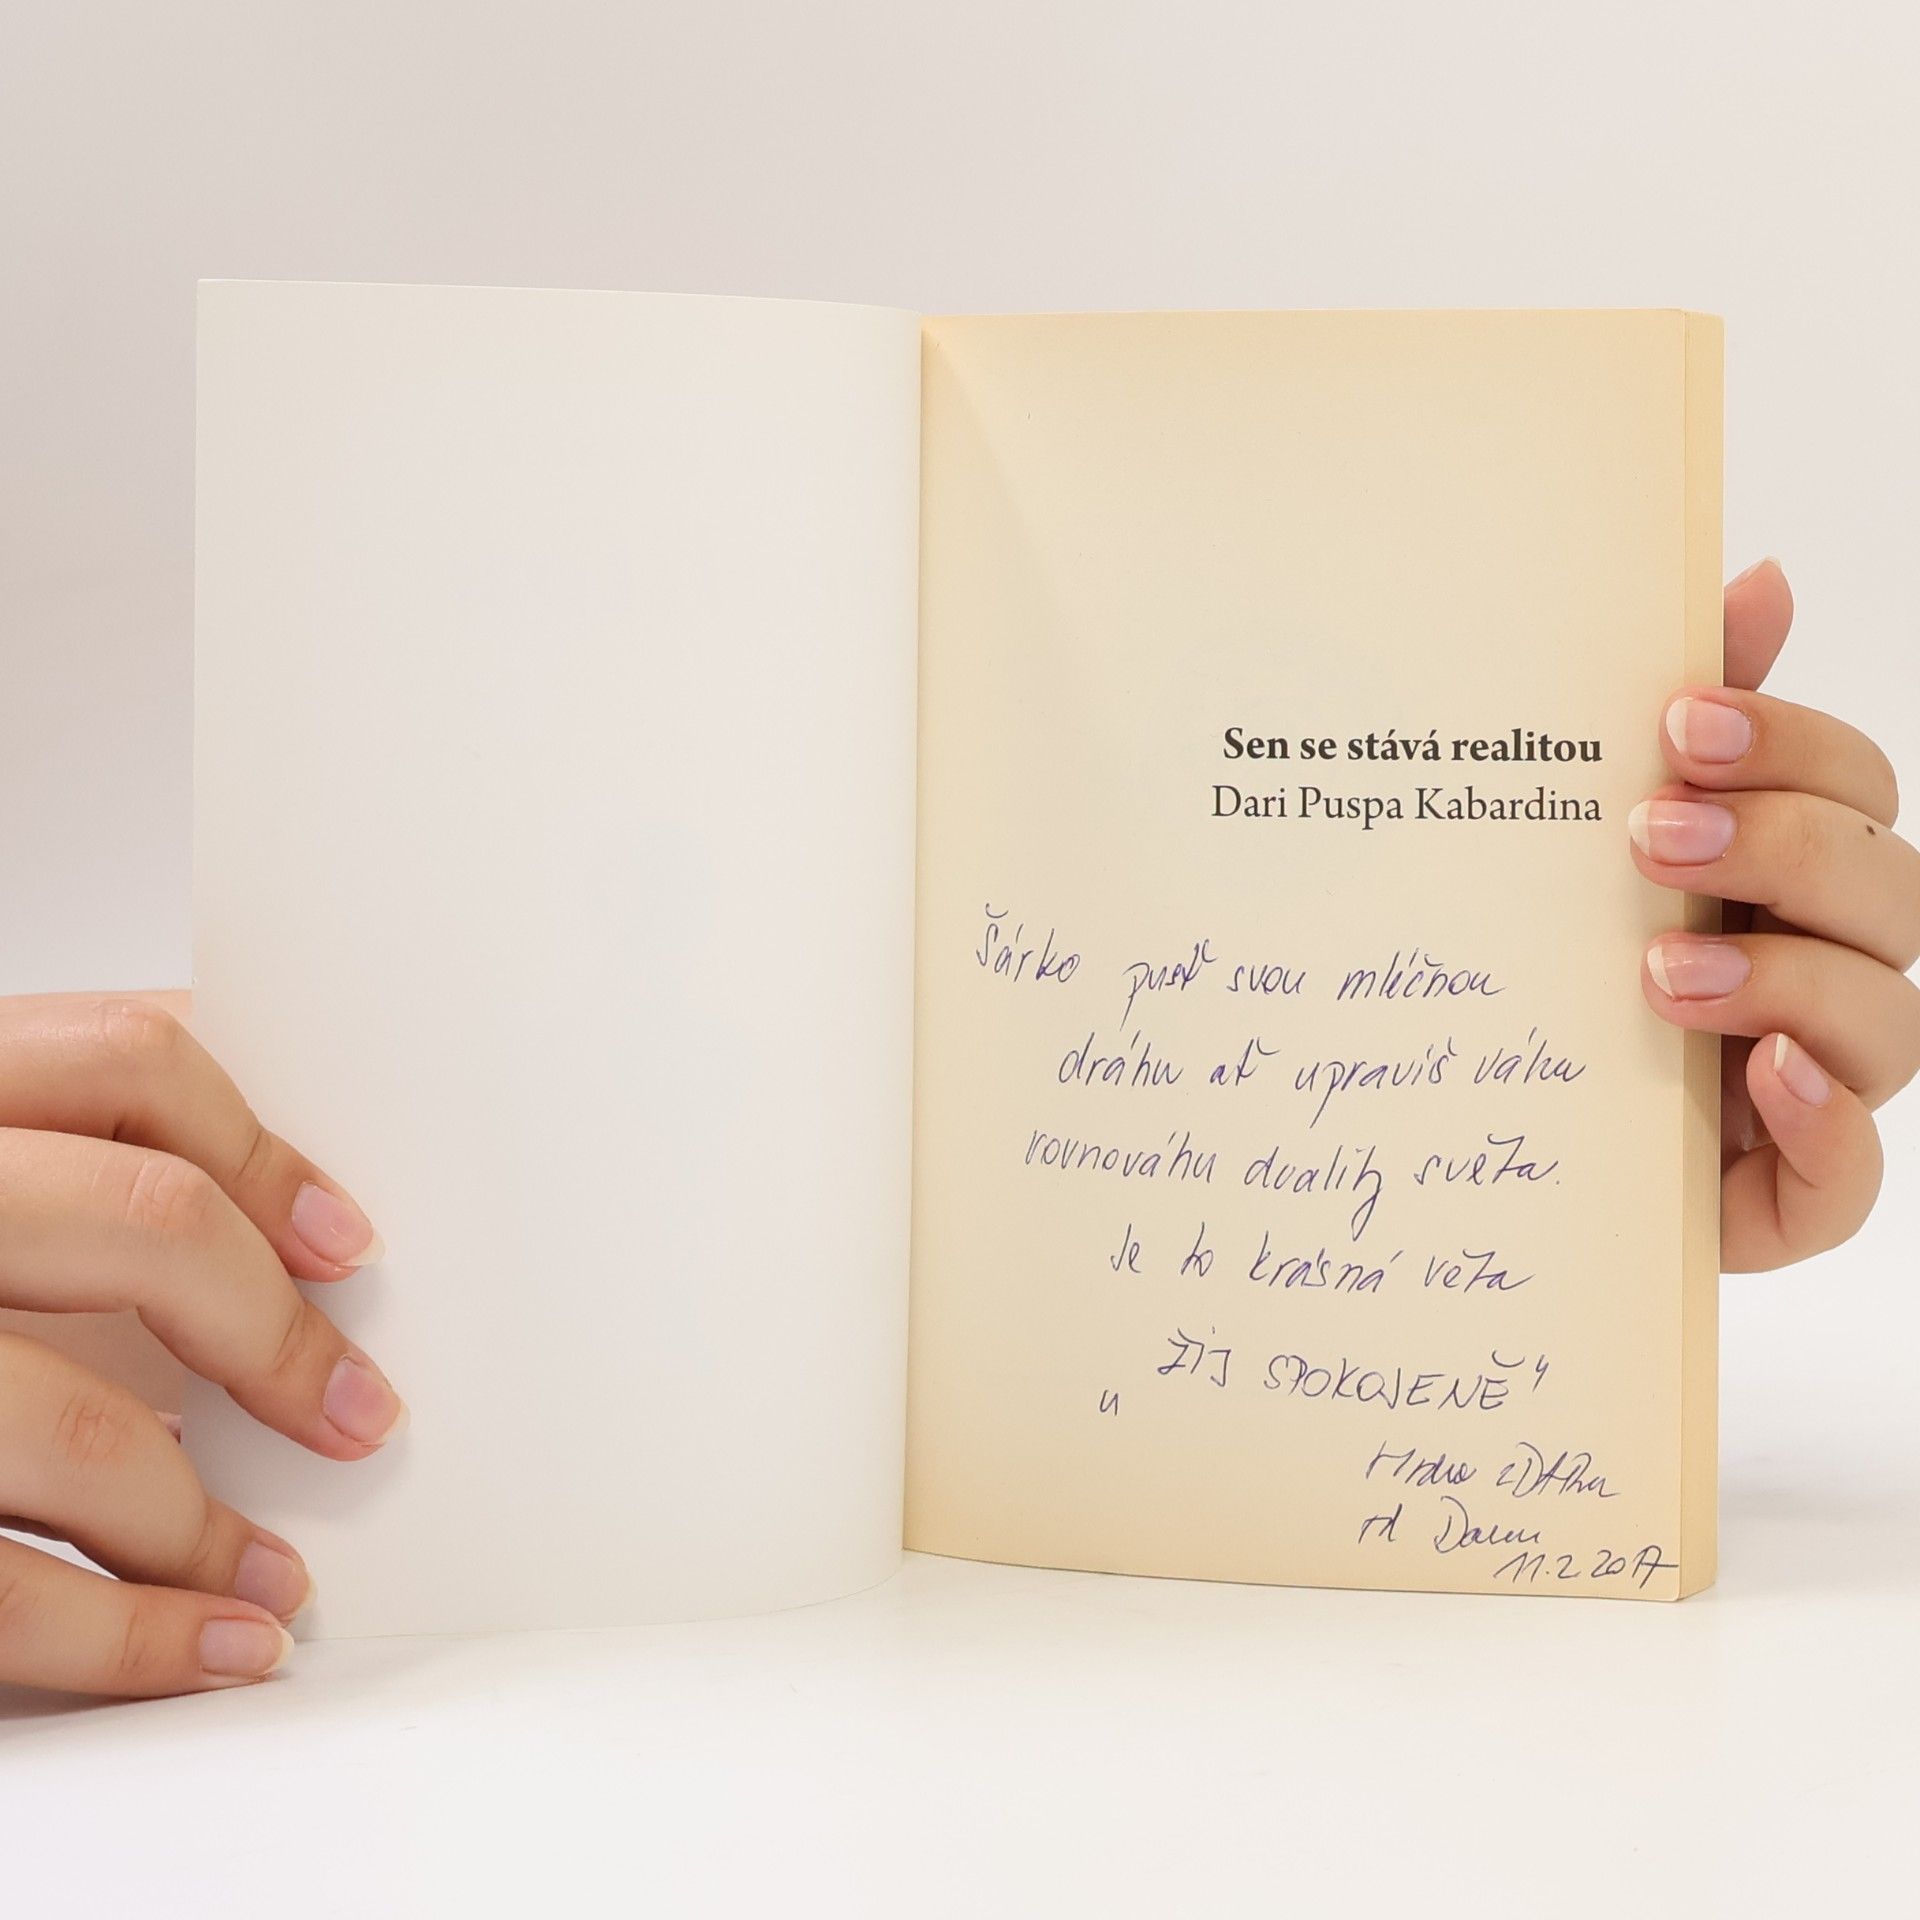 Sen se stává realitou
Dari Puspa Kabardina
Šárko pusť svou mléčnou
dráhu ať upravíš váhu
rovnováhu duality světa.
Je to krásná věta
„ ŽIJ SPOKOJENĚ"
Hodně ZDARu
od
11.2.2017